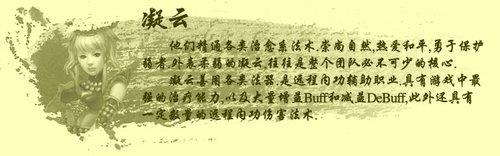 凝云
他们精通各类治愈系法术.崇尚自然,热爱和平,勇于保护
弱者,外表柔弱的凝云,往往是整个团队必不可少的核心.
凝云善用各类法器,是远程内功辅助职业.具有游戏中最
强的治疗能力,以及大量增益Buff和减益DeBuff,此外还具有
一定数量的远程内功伤害法术.